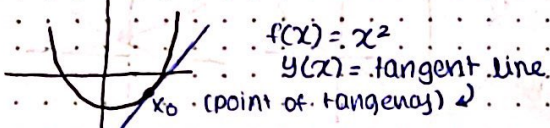 f(x) = x²
y(x) = tangent line
x₀ (point of tangency)